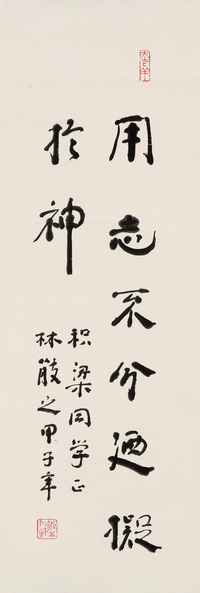 用志不分迺凝
於神
积梁同学正
林散之甲子年